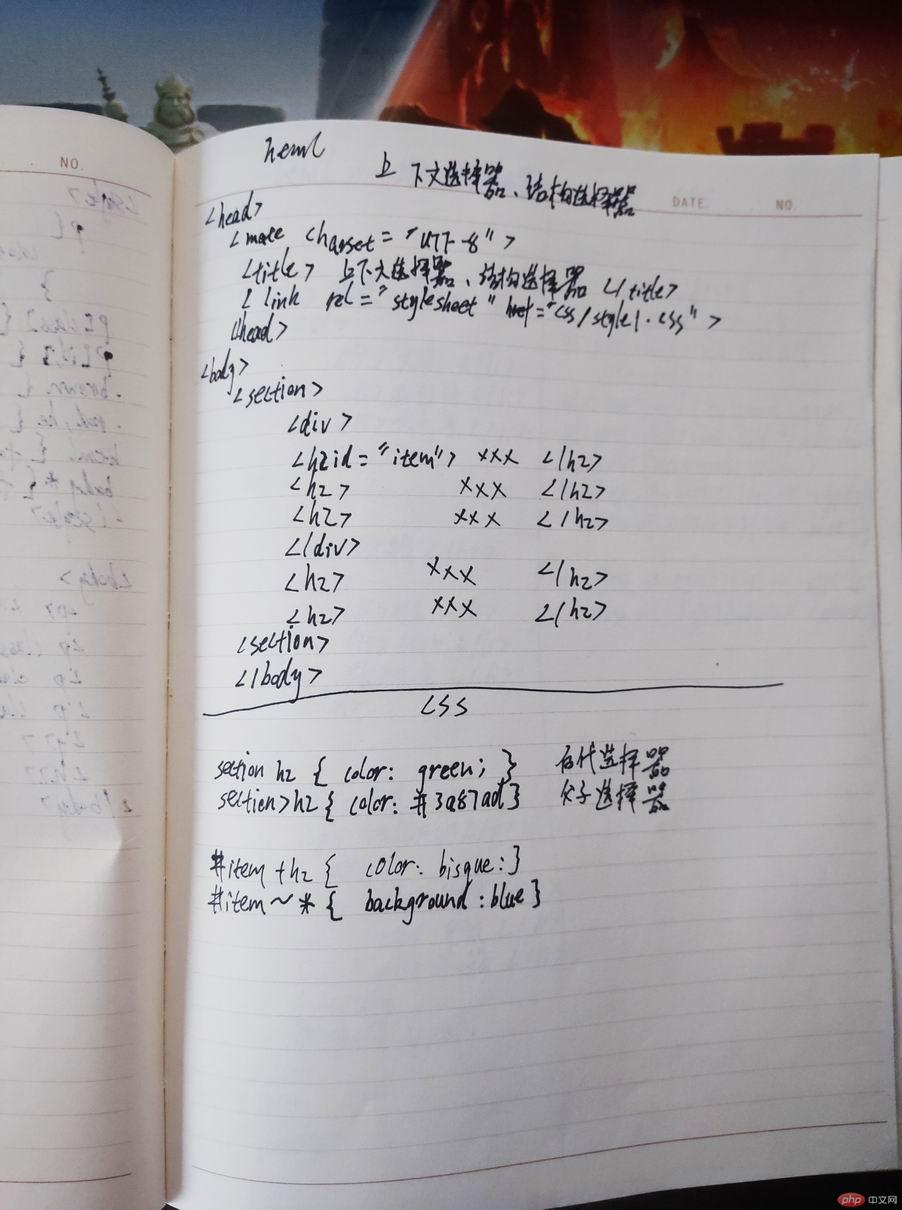 NO.
heml 上下文选择器、结构选择器
DATE. NO.
<head>
<mate chaoset="UTF-8">
<title> 上下文选择器、结构选择器 </title>
< link rel="stylesheet" href="css/style1.css">
<head>
<body>
<section>
<div>
<h2id="item"> xxx </h2>
<h2> xxx </h2>
<h2> xxx </h2>
</div>
<h2> xxx </h2>
<h2> xxx </h2>
<section>
</body>
css
section h2 { color: green; } 后代选择器
section>h2 { color: #3a87ad} 父子选择器
#item +h2 { color: bisque:}
#item ~ * { background :blue }
php 中文网